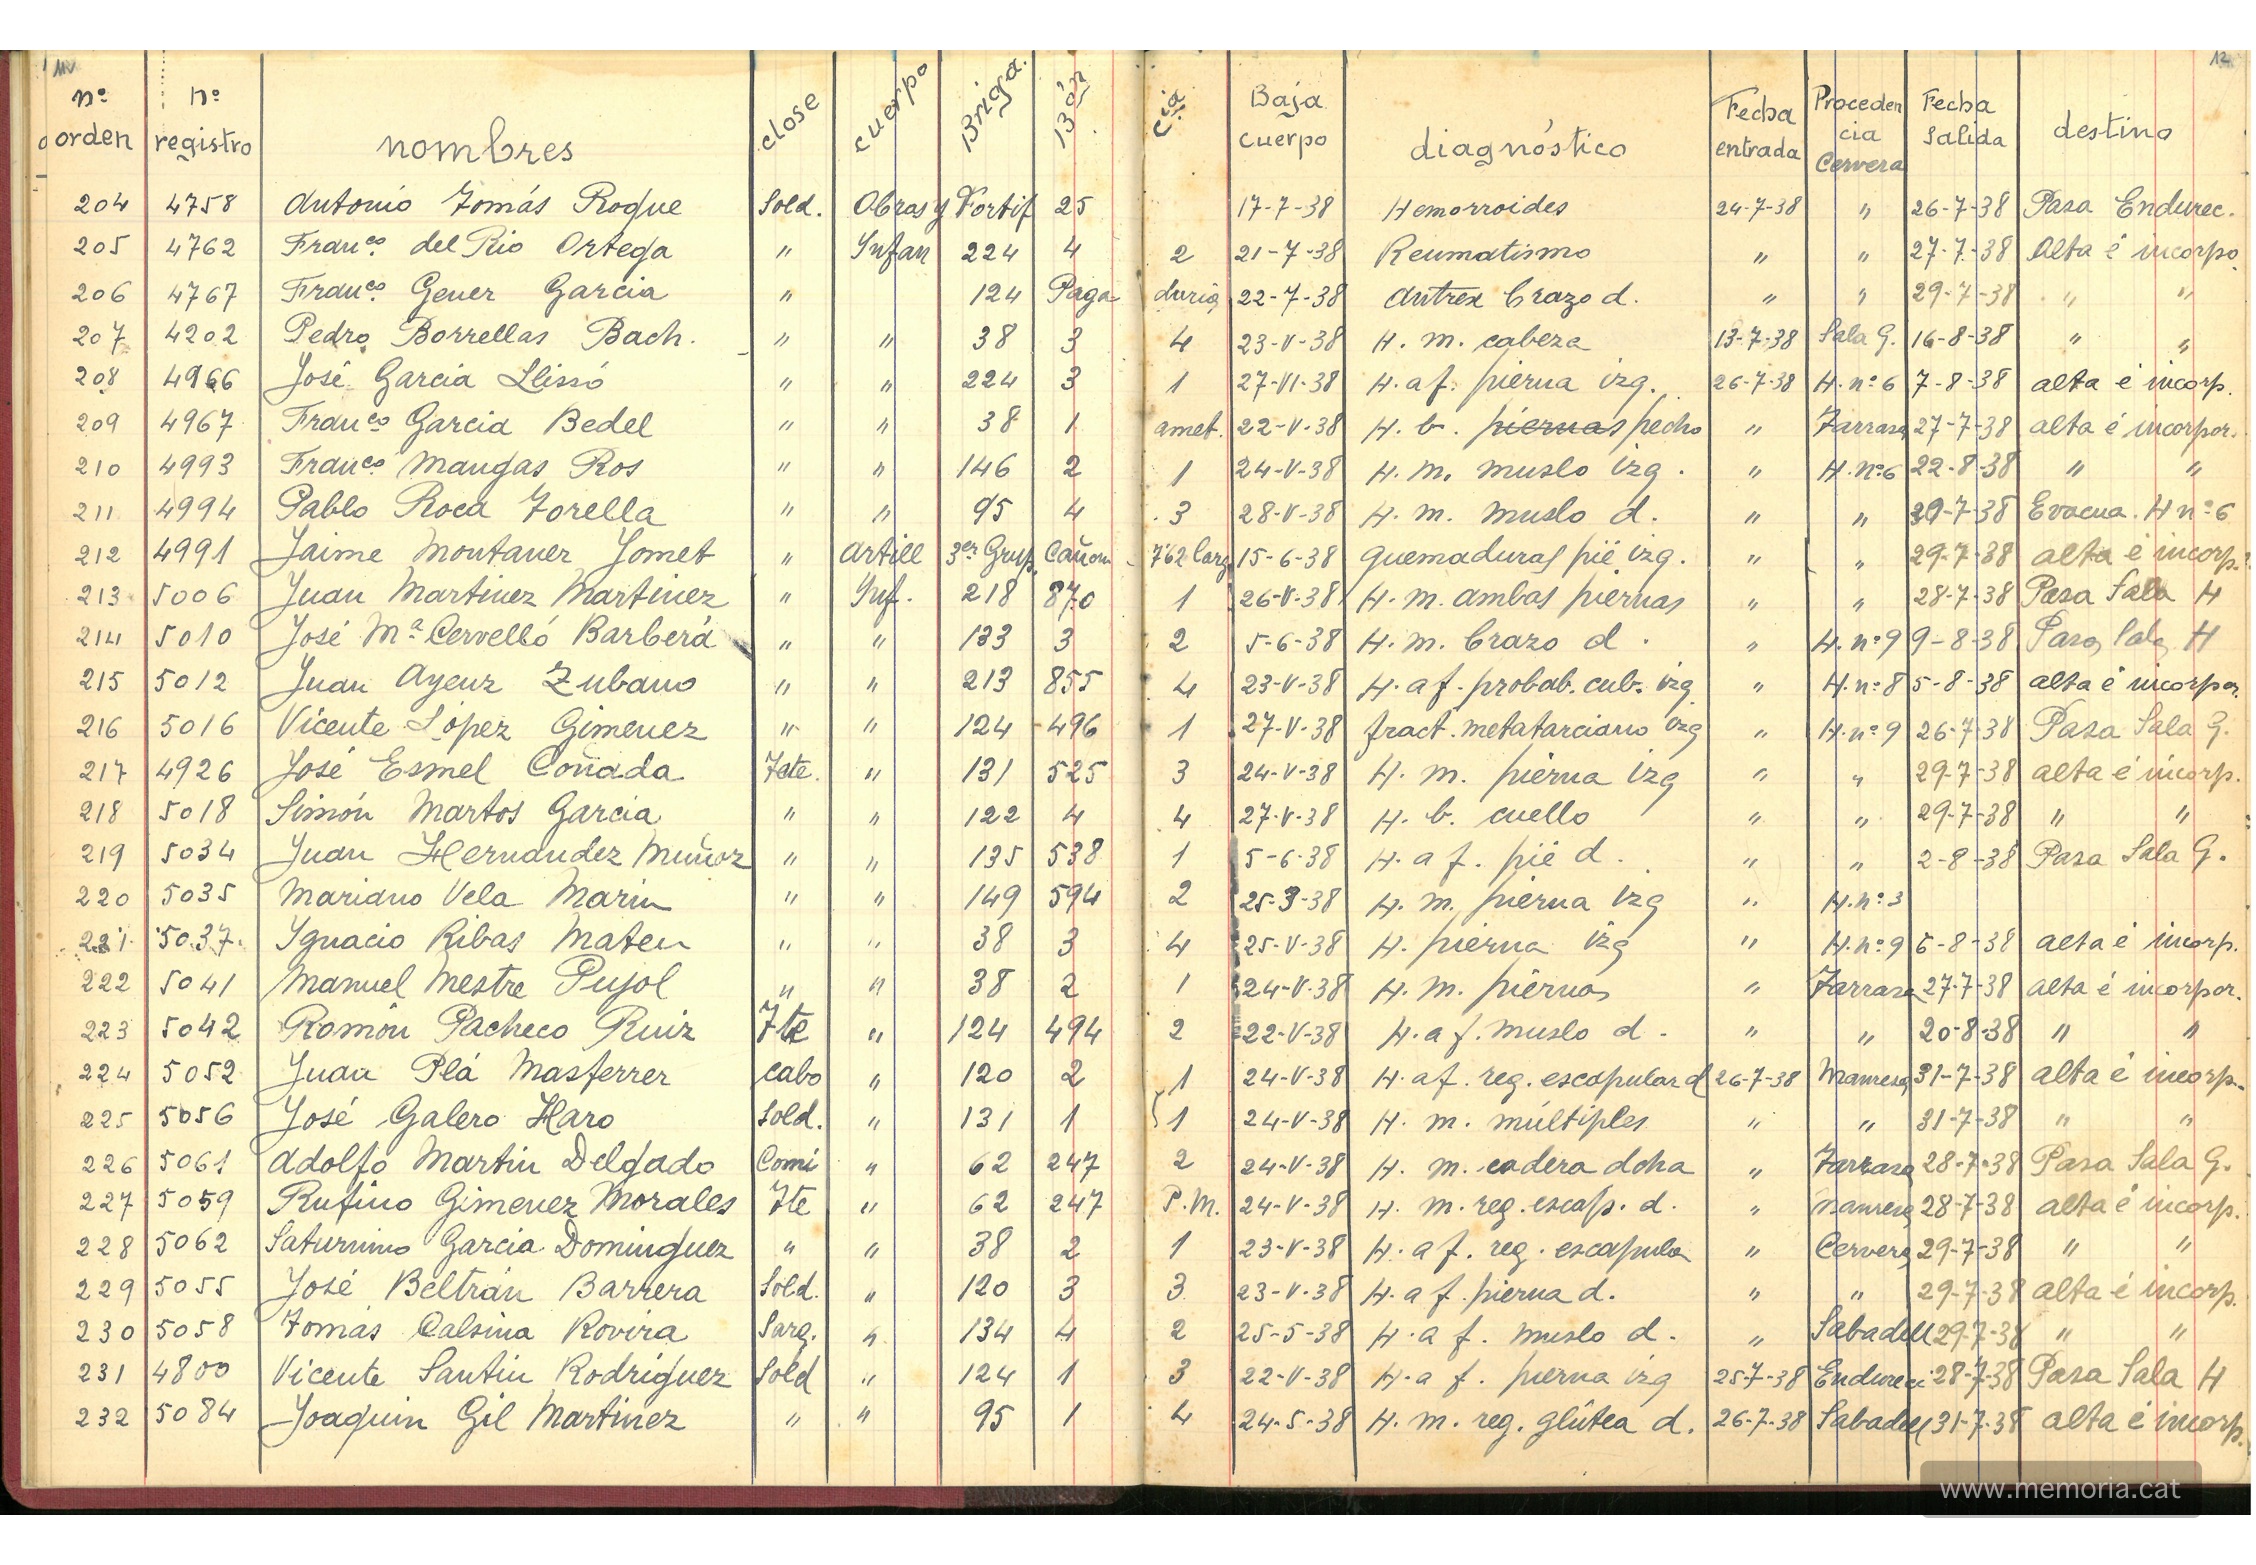 nº orden nº registro nombres close cuerpo Briga. Bón. cía Baja cuerpo diagnóstico Fecha entrada Procedencia Cervera Fecha Salida destino
204 4758 Antonio Tomás Roque Sold. Obras y Fortif 25 17-7-38 Hemorroides 24-7-38 " 26-7-38 Pasa Endurec.
205 4762 Franco. del Rio Ortega " Ynfan 224 4 2 21-7-38 Reumatismo " " 27-7-38 Alta é incorpo.
206 4767 Franco. Gener Garcia " 124 Paga duria 22-7-38 brazo d. " " 29-7-38 " "
207 4202 Pedro Borrellas Bach. " " 38 3 4 23-V-38 H. m. cabeza 13-7-38 Sala G. 16-8-38 " "
208 4966 José Garcia Llissó " " 224 3 1 27-VI-38 H. a f. pierna izq. 26-7-38 H. nº 6 7-8-38 alta é incorp.
209 4967 Franco Garcia Bedel " " 38 1 amet. 22-V-38 H. b. piernas pecho " Tarrasa 27-7-38 alta é incorpor.
210 4993 Franco Mangas Ros " " 146 2 1 24-V-38 H. m. muslo izq. " H. nº 6 22-8-38 " "
211 4994 Pablo Roca Torella " " 95 4 3 28-V-38 H. m. muslo d. " " 29-7-38 Evacua. H nº 6
212 4991 Jaime Montaner Jomet " Artill 3er Grup. Cañon 7'62 Carg 15-6-38 quemaduras pié izq. " " 29-7-38 alta é incorp.
213 5006 Juan Martinez Martinez " Ynf. 218 870 1 26-V-38 H. m. ambas piernas " " 28-7-38 Pasa Sala H
214 5010 José Mª Cervelló Barberá " " 133 3 2 5-6-38 H. m. brazo d. " H. nº 9 9-8-38 Pasa Sala H
215 5012 Juan Ayenz Zubano " " 213 855 4 23-V-38 H. a f. probab. cub. izq " H. nº 8 5-8-38 alta é incorpor.
216 5016 Vicente López Gimenez " " 124 496 1 27-V-38 fract. metatarciano izq " H. nº 9 26-7-38 Pasa Sala G.
217 4926 José Esmel Coñada Tete. " 131 525 3 24-V-38 H. m. pierna izq " " 29-7-38 alta é incorp.
218 5018 Simón Martos Garcia " " 122 4 4 27-V-38 H. b. cuello " " 29-7-38 " "
219 5034 Juan Hernandez Muñoz " " 135 538 1 5-6-38 H. a f. pié d. " " 2-8-38 Pasa Sala G.
220 5035 Mariano Vela Marin " " 149 594 2 25-3-38 H. m. pierna izq " H. nº 3
221 5037 Ygnacio Ribas Mateu " " 38 3 4 25-V-38 H. pierna izq " H. nº 9 6-8-38 alta é incorp.
222 5041 Manuel Mestre Pujol " " 38 2 1 24-V-38 H. m. piernas " Tarrasa 27-7-38 alta é incorpor.
223 5042 Ramón Pacheco Ruiz Tte " 124 494 2 22-V-38 H. a f. muslo d. " " 20-8-38 " "
224 5052 Juan Plá Masferrer cabo " 120 2 1 24-V-38 H. a f. reg. escapular d 26-7-38 Manresa 31-7-38 alta é incorp.
225 5056 José Galero Haro Sold. " 131 1 1 24-V-38 H. m. múltiples " " 31-7-38 " "
226 5061 Adolfo Martin Delgado Comi " 62 247 2 24-V-38 H. m. cadera dcha " Tarrasa 28-7-38 Pasa Sala G.
227 5059 Rufino Gimenez Morales Tte " 62 247 P.M. 24-V-38 H. m. reg. escap. d. " Manresa 28-7-38 alta é incorp.
228 5062 Saturnino Garcia Dominguez " " 38 2 1 23-V-38 H. a f. reg. escapula " Cervera 29-7-38 " "
229 5055 José Beltrán Barrera Sold. " 120 3 3 23-V-38 H. a f. pierna d. " " 29-7-38 alta é incorp.
230 5058 Tomás Calsina Rovira Sarg. " 134 4 2 25-5-38 H. a f. muslo d. " Sabadell 29-7-38 " "
231 4800 Vicente Santin Rodriguez Sold " 124 1 3 22-V-38 H. a f. pierna izq 25-7-38 Endurec 28-7-38 Pasa Sala H
232 5084 Joaquin Gil Martinez " " 95 1 4 24-5-38 H. m. reg. glútea d. 26-7-38 Sabadell 31-7-38 alta é incorp.
www.memoria.cat